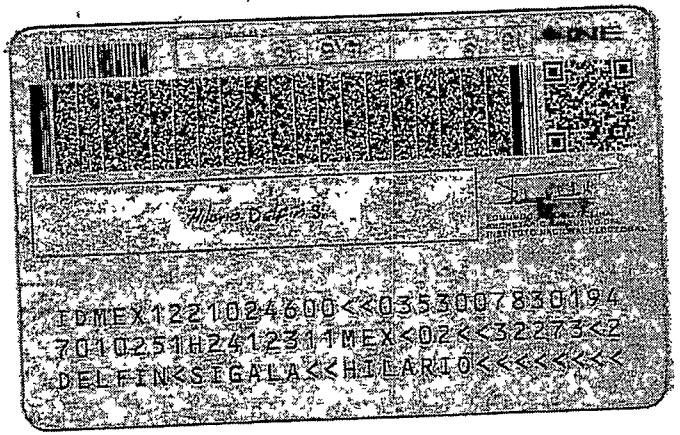 INE
Hilario Delfin S
INSTITUTO NACIONAL ELECTORAL
IDMEX1221024600<<0353007830194
7010251H2412311MEX<02<<32273<2
DELFIN<SIGALA<<HILARIO<<<<<<<<